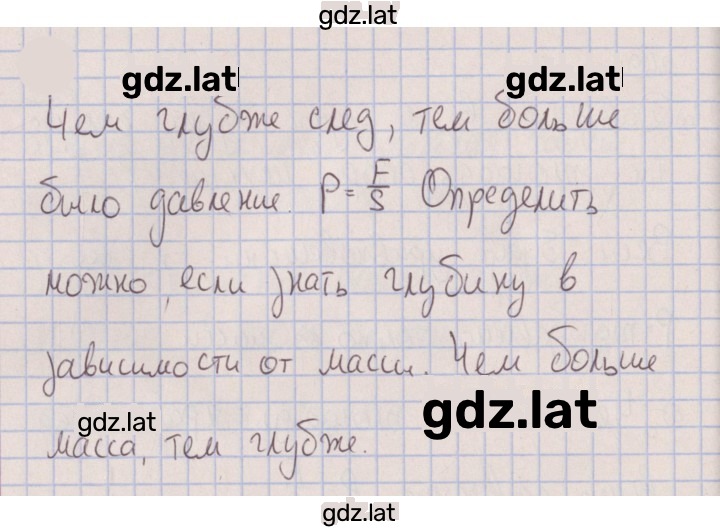 gdz.lat
gdz.lat gdz.lat
Чем глубже след, тем больше
было давление. P = F/S Определить
можно, если знать глубину в
зависимости от массы. Чем больше
gdz.lat gdz.lat
масса, тем глубже.
gdz.lat